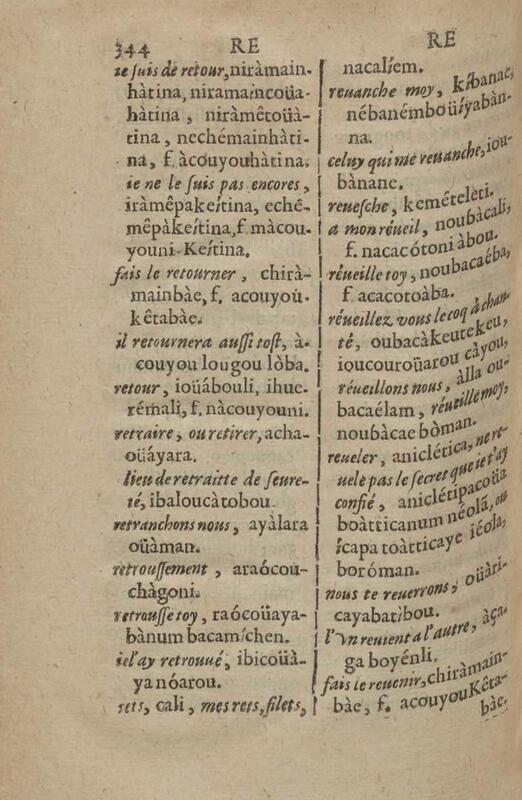 344
RE
ie suis de retour, niràmain-
hàtina, niramaincoüa-
hàtina, niràmêtoüà-
tina, nechémainhàti-
na, f. àcouyouhàtina.
ie ne le suis pas encores,
iràmêpakeítina, eché-
mêpàkeítina, f. màcou-
youni-Keítina.
fais le retourner, chirà-
mainbàe, f. acouyoú-
kêtabàe.
il retournera aussi tost, à-
couyou lougou lòba.
retour, ioüábouli, ihue-
rémali, f. nàcouyouni.
retraire, ou retirer, acha-
oüáyara.
lieu de retraitte de seure-
té, ibaloucàtobou.
retranchons nous, ayàlara
oüàman.
retroussement, araócou-
chàgoni.
retrousse toy, raócoüaya-
bànum bacamíchen.
ie l'ay retrouué, ibicoüà-
yanóarou.
rets, cali, mes rets, filets,
RE
nacalíem.
reuanche moy, kíbanac,
nébanémboüíyabàn-
na.
celuy qui me reuanche, iou-
bànane.
reuesche, kemételéti.
a mon réueil, noubàcali,
f. nacacótoni àbou.
réueille toy, noubacaéba,
f. acacotoàba.
réueillez vous le coq à chan-
té, oubacàkeutekeu,
ioucouroüarou càyou,
réueillons nous, àlla ou-
bacaélam, réueille moy,
noubàcae bòman.
reueler, aniclética, ne re-
uele pas le secret que ie t'ay
confié, aniclétipacoüa
boàtticanum néolã, ou
ícapa toàtticaye iéola,
boróman.
nous te reuerrons, oüàri-
cayabatíbou.
l'vn reuient a l'autre, àça-
ga boyénli.
fais le reuenir, chiràmain-
bàe, f. acouyouKêta-
bàe,